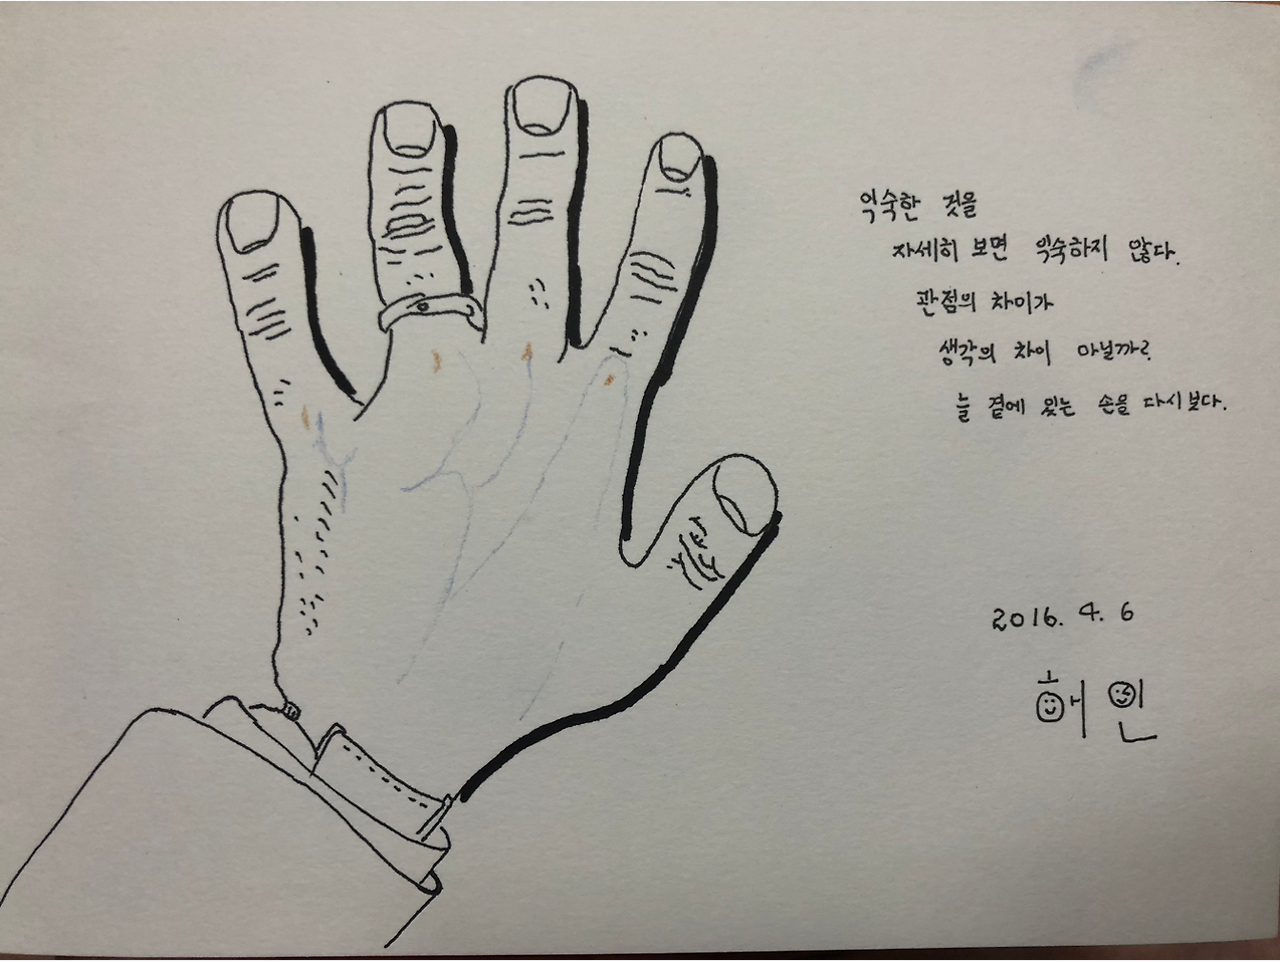 익숙한 것을
자세히 보면 익숙하지 않다.
관점의 차이가
생각의 차이 아닐까?
늘 곁에 있는 손을 다시보다.
2016. 4. 6
혜인